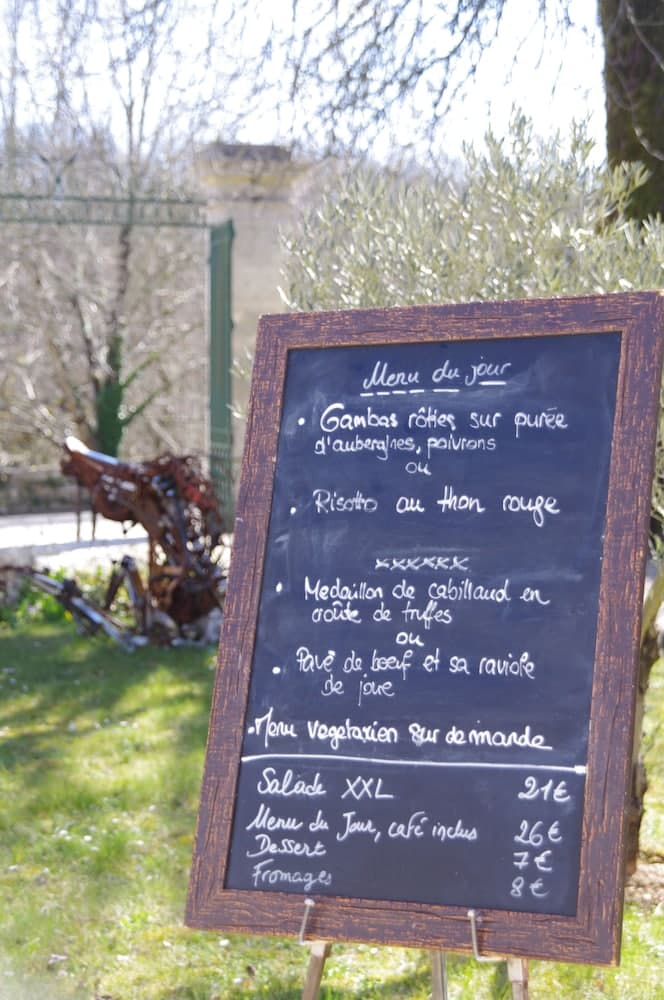 Menu du jour
• Gambas rôties sur purée
d'aubergines, poivrons
ou
• Risotto au thon rouge
xxxxxx
• Medaillon de cabillaud en
croûte de truffes
ou
• Pavé de boeuf et sa raviole
de joue
• Menu vegetarien sur demande
Salade XXL 21€
Menu du Jour, café inclus 26€
Dessert 7€
Fromages 8€